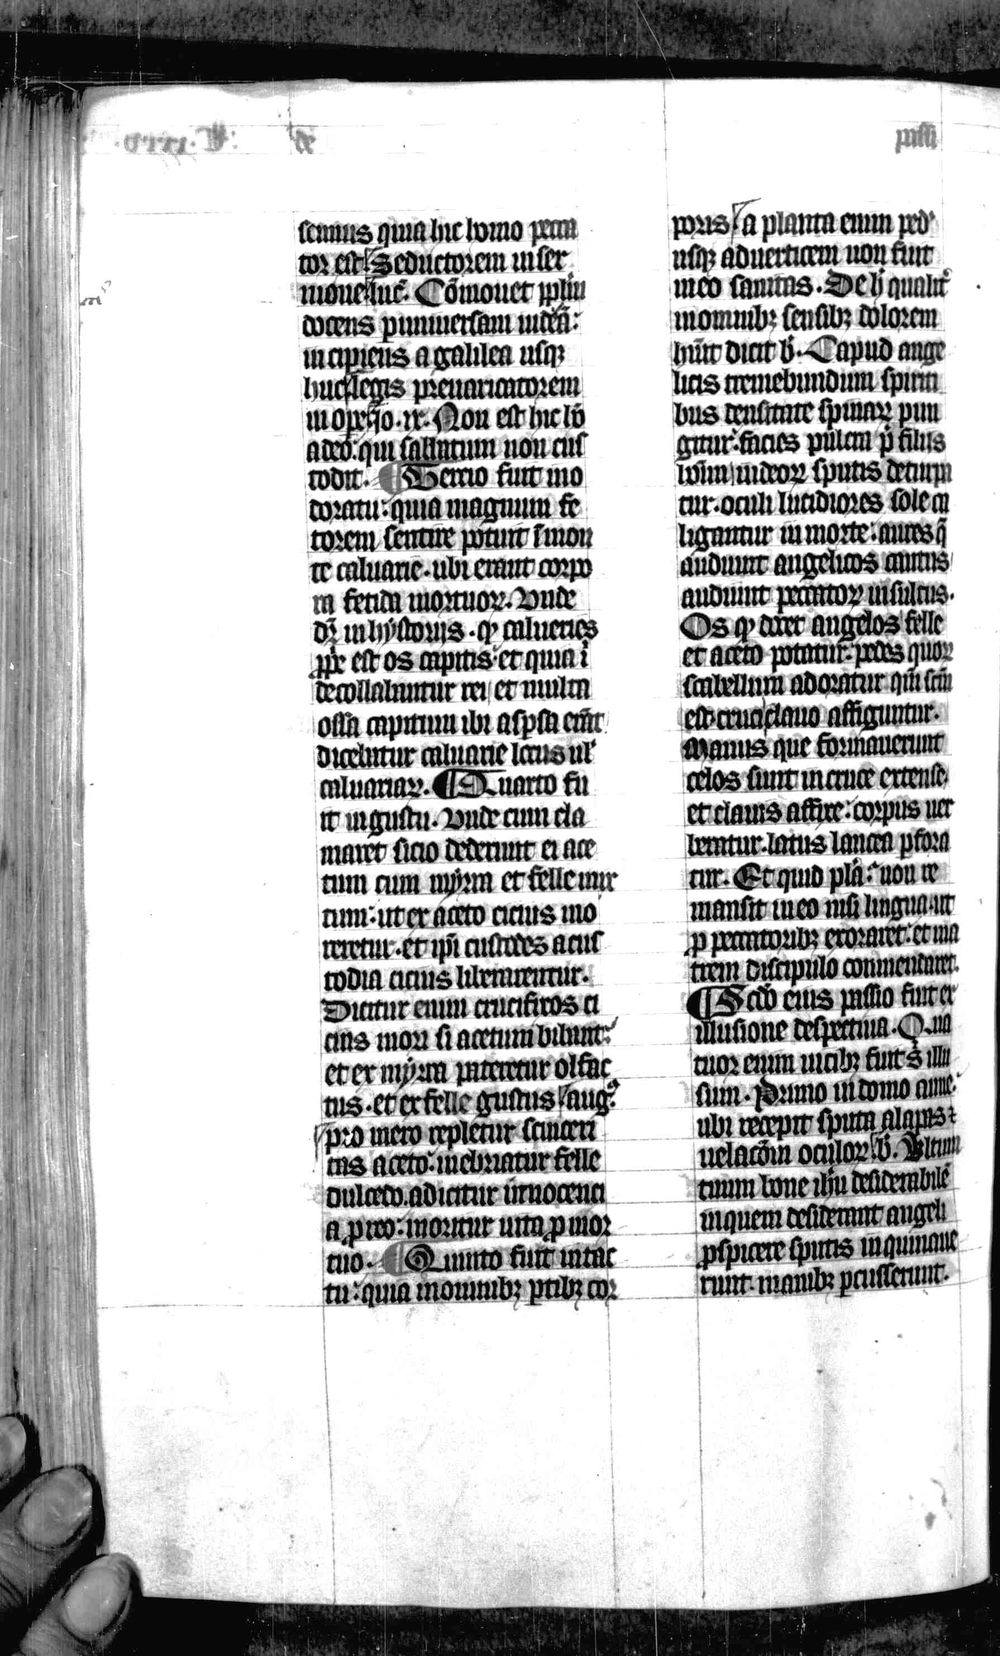 de
passi
scimus quia hic homo pecca
tor est. Seductorem in ser
mone. luc̄. Cōmouet pplm̄
docens p uniuersam iudeā.
incipiens a galilea usqꝫ
huc. legis preuaricatorem
in ope. io. ix. Non est hic hō
a deo. qui sabbatum non cus
todit. Tercio fuit in o
doratu. quia magnum fe
torem sentire potuit ī mon
te caluarie. ubi erant corpo
ra fetida mortuoꝝ. Unde
dr̄ in hystoriis. qꝫ caluaries
ꝓpe est os capitis. et quia ī
decollabantur rei et multa
ossa capitum ibi aspsa erāt
dicebatur caluarie locus ul̄
caluariaꝝ. Quarto fu
it in gustu. Unde cum cla
maret sicio dederunt ei ace
tum cum myrra et felle mix
tum. ut ex aceto cicius mo
reretur. et ipi custodes a cus
todia cicius liberarentur.
Dicitur enim crucifixos ci
cius mori si acetum bibant.
et ex myrra pateretur olfac
tus. et ex felle gustus. augꝰ.
pro mero repletur sinceri
tas aceto. inebriatur felle
dulcedo. adicitur innocenci
a ꝓ reo. moritur uita ꝓ mor
tuo. Quinto fuit in tac
tu. quia in omnibꝫ ptibꝫ cor
poris. a planta enim ped
usqꝫ ad uerticem non fuit
in eo sanitas. De h̄ qualit̄
in omnibꝫ sensibꝫ dolorem
hūit dicit b̄. Capud ange
licis tremebundum spiriti
bus densitate spinaꝝ pun
gitur. facies pulcra p̄ filiis
hoīm iudeoꝝ sputis deturpa
tur. oculi lucidiores sole ca
ligantur in morte. aures q̄
audiunt angelicos cantus
audiunt peccatoꝝ insultus.
Os qꝫ docet angelos felle
et aceto potatur. pedes quoꝝ
scabellum adoratur qm̄ scm̄
est. cruci clauo affiguntur.
Manus que formauerunt
celos sunt in cruce extense
et clauis affixe. corpus uer
beratur. latus lancea pfora
tur. Et quid pla. non re
mansit in eo nisi lingua. ut
ꝓ peccatoribꝫ exoraret. et ma
trem discipulo commendaret.
Scd̄o eius passio fuit ex
illusione despectiua. Qua
tuor enim uicibꝫ fuit illu
sum. Primo in domo anne.
ubi recepit sputa alapas ⁊
uelacōm oculoꝝ. b̄. Ultum
tuum bone ihu desiderabilē
in quem desiderant angeli
ꝓspicere sputis inquinaue
runt. manibꝫ pcusserunt.